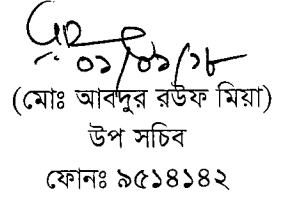 ০১/০১/১৮
(মোঃ আবদুর রউফ মিয়া)
উপ সচিব
ফোনঃ ৯৫১৪১৪২